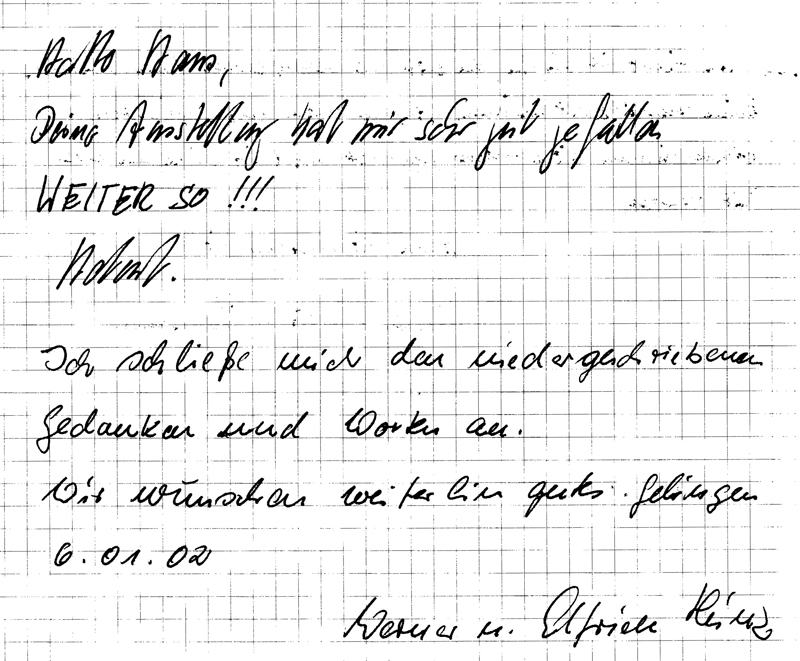 Hallo Hans,
Deine Ausstellung hat mir sehr gut gefallen
WEITER SO !!!
Ich schließe mich den niedergeschriebenen
Gedanken und Worten an.
Wir wünschen weiterhin gutes Gelingen
6.01.02
Werner u. Elfriede Heinz